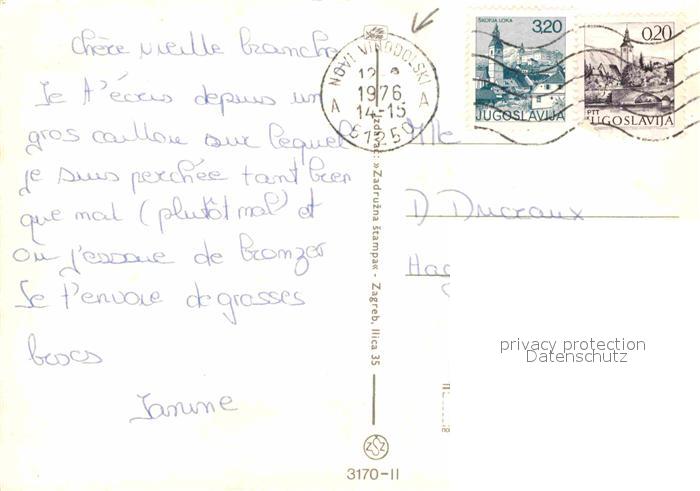 Chère vieille branche
Je t'écris depuis un
gros caillou sur lequel
je suis perchée tant bien
que mal (plutôt mal) et
ou j'essaie de bronzer
Je t'envoie de grosses
bises
Janine
NOVI VINODOLSKI
1976
14-15
A A
51250
ŠKOFJA LOKA
3.20
JUGOSLAVIJA
0.20
PTT
JUGOSLAVIJA
Mlle
D Ducraux
Izdavač: »Zadružna štampa« - Zagreb, Ilica 35
privacy protection
Datenschutz
3170-II